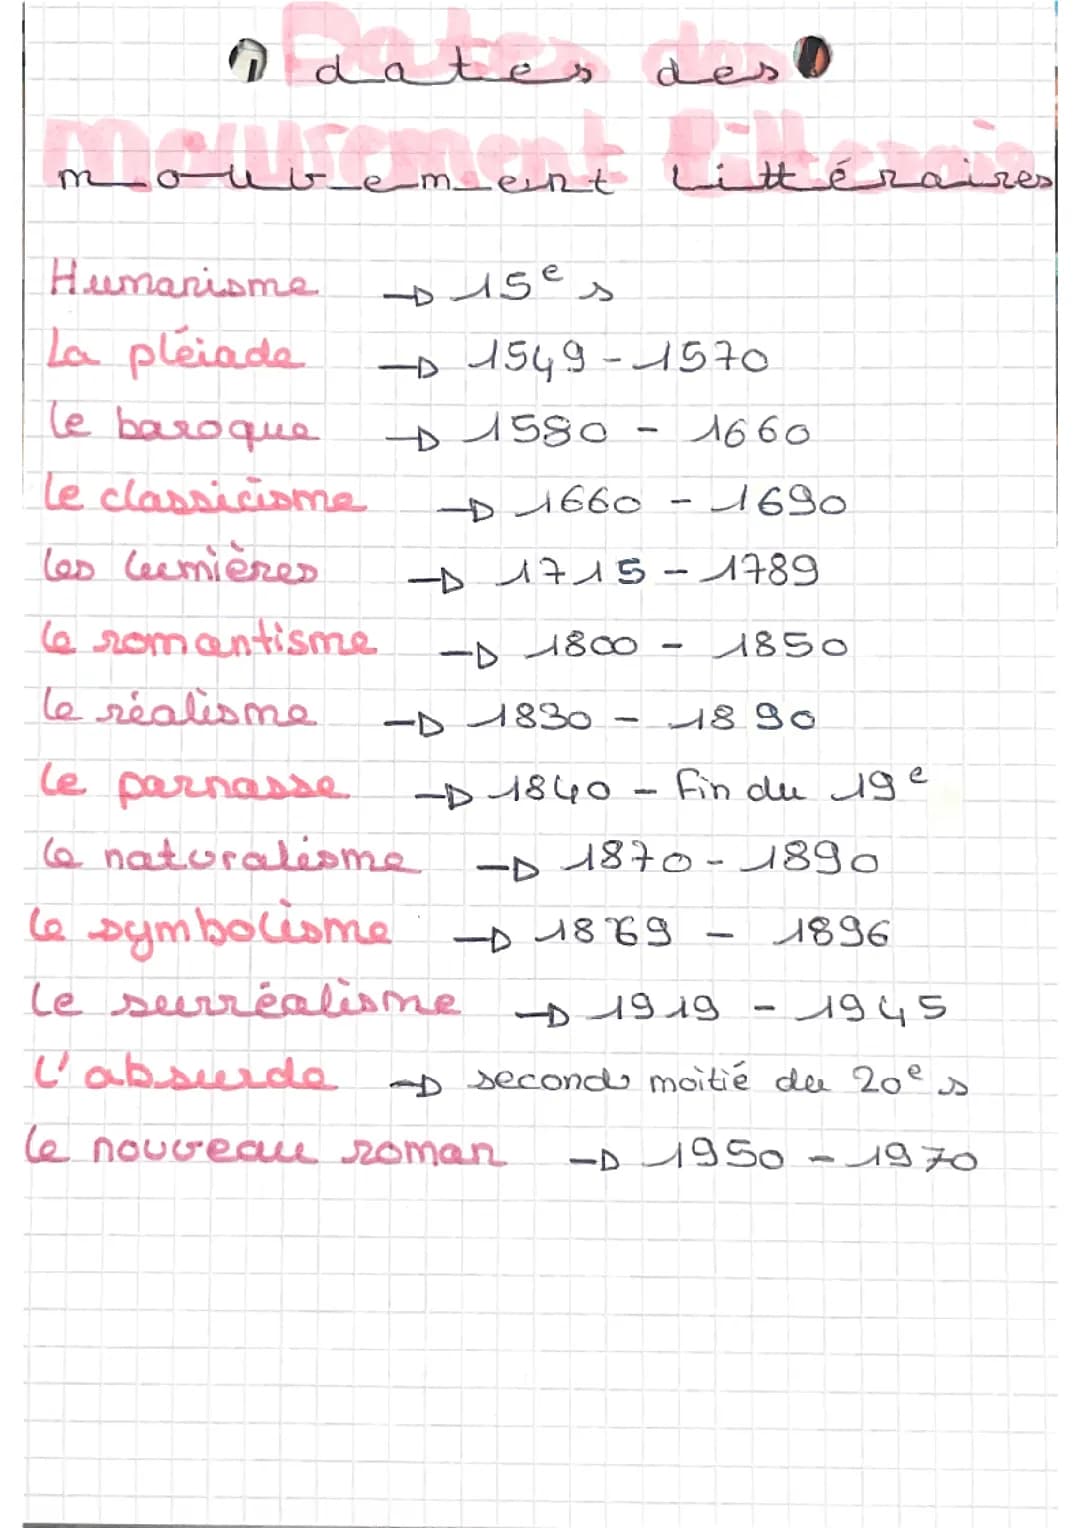 dates des
mouvement littéraires
Humanisme → 15e s
La pléiade → 1549 - 1570
le baroque → 1580 - 1660
le classicisme → 1660 - 1690
les lumières → 1715 - 1789
le romantisme → 1800 - 1850
le réalisme → 1830 - 1890
le parnasse → 1840 - fin du 19e
le naturalisme → 1870 - 1890
le symbolisme → 1869 - 1896
le surréalisme → 1919 - 1945
l'absurde → second moitié du 20e s
le nouveau roman → 1950 - 1970